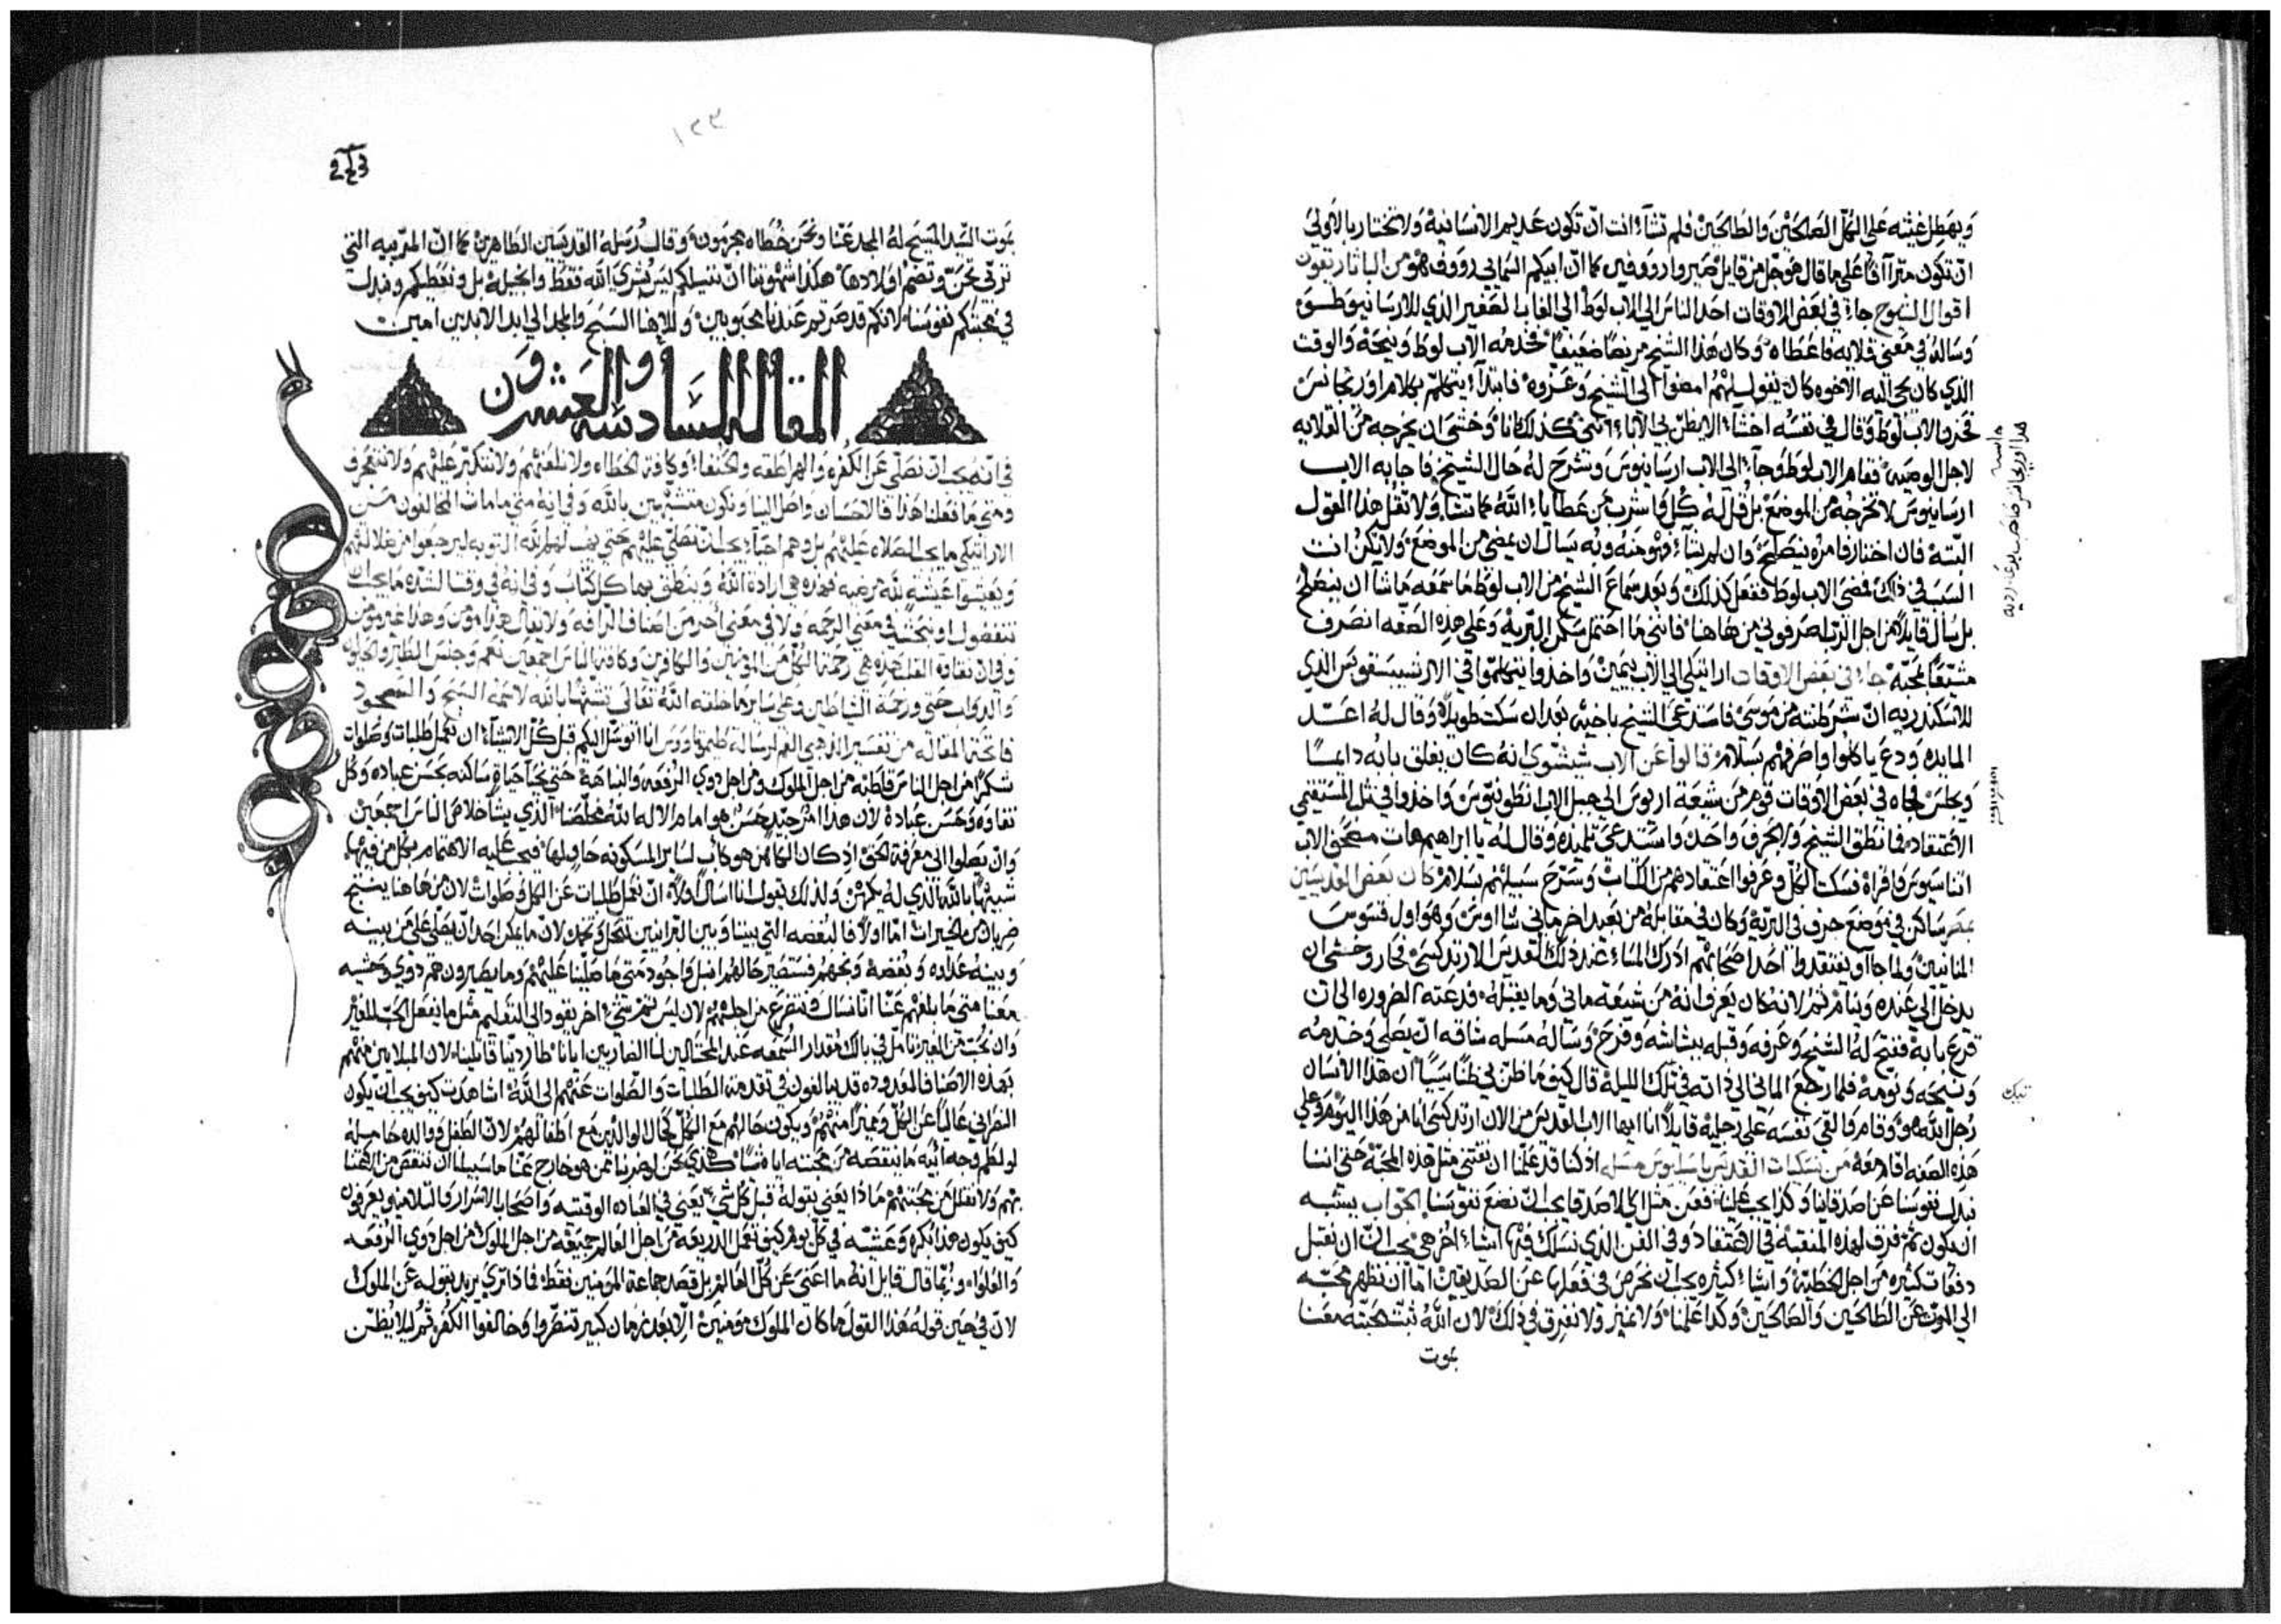 ويهطل غيثه على الكل الصالحين والطالحين فلم تشآء انت ان تكون عديم الانسانية ولا تختار بالاولي
ان تكون مترآفا علي ما قال هو جل من قايل صيروا رووفين كما ان ابيكم السماني رووف هو من الباتاريقون
اقوال الشيوخ جاء في بعض الاوقات احد الناس الي الاب لوط الي الغاب الصغير الذي للارسانيوطسق
وساله في معني قلايه فاعطاه وكان هذا الشيخ مريضا ضعيفا فخدمه الاب لوط ونيحه والوقت
الذي كان يجي اليه الاخوه كان يقول لهم امضوا الي الشيخ وعزوه فابتدآء يتكلم بكلام اوريجانس
فحزن الاب لوط وقال في نفسه اخشاء الا يظن بي الابا انني كذلك انا وخشي ان يخرجه من القلايه
لاجل الوصيه فقام الاب لوط وجآء الي الاب ارسانيوس وشرح له حال الشيخ فاجابه الاب
ارسانيوس لا تخرجه من الموضع بل قل له كل واشرب من عطايا الله كما تشاء ولا تقل هذا القول
البتة فان اختار فامره ينصلح وان لم يشآء فهو منه وبه يسال ان يمضي من الموضع ولا تكن انت
السبب في ذلك فمضي الاب لوط ففعل كذلك وبعد سماع الشيخ من الاب لوط ما سمعه ما شآ ان ينصلح
بل سال قايلا من اجل الرب اصرفوني من هاهنا فانني ما احتمل سكن البرية وعلي هذه الصفه انصرف
مشيعا بمحبة جاء في بعض الاوقات اراتيكي الي الاب بيمين واخذوا يتكلموا في الارشيبسقوبس الذي
للاسكندريه ان شرطنته من قوسي فاستدعي الشيخ باخيه بعد ان سكت طويلا وقال له اعد
المايده ودع ياكلوا واصرفهم بسلام قالوا عن الاب شيشوي انه كان يغلق بابه دايمًا
ويجلس في بعض الاوقات قوم من شيعة اريوس الي جبل الاب انطونيوس واخذوا في ثلب المستقيمي
الاعتقاد فما نطق الشيخ ولا بحرف واحد واستدعي تلميذه وقال له يا ابراهيم هات مصحف الاب
اتناسيوس واقراه فسكت الكل وعرفوا اعتقادهم من الكتاب وسرح سبيلهم بسلام كان بعض القديسين
بمصر ساكن في موضع حرف في البرية وكان في مقابله من بعيد اخر ماني وهو اول قسوس
المانيين ولما جآء يفتقدوا احد اصحابهم ادرك المساء عند ذلك القديس الارتدكسي فحار وخشي ان
يدخل الي عنده وينام ثم لانه كان يعرف انه من شيعة ماني وما يقبله فدعته الضروره الي ان
قرع بابه ففتح له الشيخ وعرفه وقبله ببشاشه وفرح وساله ان يصلي وخدمه
ونيحه ونومه فلما رجع الماني الي ذاته في تلك الليلة قال كيف ما ظن بي ظنا سيًا ان هذا الانسان
رجل الله هو وقام والقي نفسه علي رجليه قايلا انا ايها الاب القديس من الان ارتدكسي انا من هذا اليوم وعلي
هذه الصفه اقام معه من نسكيات القديس باسليوس مسله اذ كنا قد علمنا ان نقتني مثل هذه المحبة حتي اننا
نبذل نفوسنا عن اصدقاينا وكذا يجب علينا فعن مثل اي الاصدقا يجب ان نضع نفوسنا الجواب يشبه
ان يكون ثم فرق لهذه المنقبة في الاعتقاد وفي الفن الذي نسلك فيها اشياء اخر هي يجب ان نقبل
دفعات كثيره من اجل الخطية واشياء كثيره يجب ان نحرص في فعلها عن الصديقين اما ان نظهر محبه
الي الموت عن الطالحين والصالحين وكذا علمنا ولا نميز ولا نفرق في ذلك لان الله ثبت محبته معنا
بموت
حاشيه
هذا اوريجانس
تنيك
١٢٣
بموت السيد المسيح له المجد عنا ونحن خطاه مجرمون وقال رسله القديسين الطاهرين كما ان المربيه التي
تربي تحن وتضم اولادها هكذا شهوتنا ان نسلكم ليس بشري الله فقط وانجيله بل ونعطيكم ونبذل
في محبتكم نفوسنا لانكم قد صرتم عندنا محبوبين ولالاهنا السبح والمجد الي ابد الابدين امين
المقاله السادسه والعشرون
في انه يجب ان نصلي عن الكفره والهراطقه والحنفاء وكافة الخطاه ولا نلعنهم ولا نتكبر عليهم ولا نتعجرف
ومتي ما فعلنا هذا فالاحسان واصل الينا ونكون متشبهين بالله وفي انه متي ما مات المخالفون من
الاراتيكي ما يجب الصلاه عليهم بل وهم احياء يجب ان نصلي عليهم حتي يهب لهم الله التوبه ليرجعوا من ضلالتهم
ويعيشوا عيشة لله مرضيه فهذه هي ارادة الله وينطق بها كل كتاب وفي انه في وقت الشده ما يجب ان
نتفضول او نبحث في معني الرحمه ولا في معني اخر من اصناف الرافه ولا يقال هذا مومن وهذا غير مومن
وفي ان نقاوة القلب هذه هي رحمة الكل من المومنين والكافرين وكافة الناس اجمعين نعم وجنس الطير والحيوان
والدواب حتي ورحمة الشياطين وعلي ساير ما خلقه الله تعالي تشبها بالله لاسمه السبح والسجود
فاتحة المقاله من تفسير الذهبي الفم لرسالة طيموتاوس انا اتوسل اليكم قبل كل الاشياء ان تعمل طلبات وصلوات
شكرًا من اجل الناس قاطبة من اجل الملوك ومن اجل ذوي الرفعه والنباهة حتي نحيا حياة ساكنه بحسن عباده وكل
نقاوه وحسن عبادة لان هذا امر جيد حسن هو امام الاله الله مخلصنا الذي يشآ خلاص الناس اجمعين
وان يصلوا الي معرفة الحق اذ كان الكاهن هو كاب لساير المسكونه حافيلها فيجب عليه الاهتمام بكل من فيها
شبيهًا بالله الذي له يكهن ولذلك يقول انا اسال اولا ان تعمل طلبات عن الكل وصلوات لان من هاهنا ينتج
ضربان من الخيرات اما اولا فالبغضه التي بيننا وبين البرانيين تنحل وتخمد لان ما يمكن احد ان يصلي علي من بينه
وبينه عداوه وبغضة ونجهم فستصير حالهم افضل واجود متي ما صلينا عليهم وما يصيرون هم ذوي وحشيه
معنا متي ما بلغهم عنا اننا نسال ونتضرع من اجلهم لان ليس ثم شيء اخر يقود الي التعليم مثل ما يفعل الحب للغير
وان نحب من الغير تامل في بالك مقدار السمعه عند المحتالين لنا الضاربين ايانا طاردينا قاتلينا لان المبلايين منهم
بهذه الاصناف المعدوده قد يبالغون في تقدمة الطلبات والصلوات عنهم الي الله اشاهدت كيف يجب ان يكون
النصراني عاليًا عن الكل ومميزًا منهم ويكون حالهم مع الكل كحال الوالدين مع اطفالهم لان الطفل ووالده حامله
لو لطم وجه ابيه ما ينقصه من محبته اياه شيا هكذي نحن لو ضربنا ممن هو خارج عنا ما سبيلنا ان ننقص من محبتنا
بهم ولا نقلل من محبتهم ماذا يعني بقوله قبل كل شي يعني في العباده الوقتيه واصحاب الاسرار والتلاميذ يعرفون
كيف يكون هذا بكره وعشيه في كل يوم كيف نعمل الذريعه من اجل العالم جميعه من اجل الملوك من اجل ذوي الرفعه
والعلوا وربما قال قايل انه ما اعني عن كل العالم بل قصد جماعة المومنين فقط فماذا تري يريد بقوله عن الملوك
لان في حين قوله هذا القول ما كان الملوك مومنين الا بعد زمان كبير تنصروا وخالفوا الكفر ثم ليلا يُظن